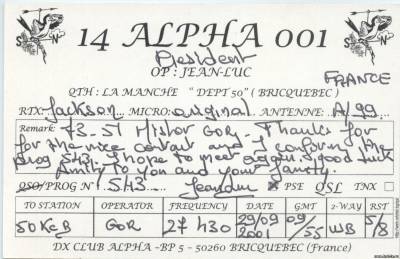 14 ALPHA 001
President
OP : JEAN-LUC
FRANCE
QTH : LA MANCHE " DEPT 50 " ( BRICQUEBEC )
RTX: Jackson MICRO: original ANTENNE: A/99
Remark: 73-51 Mister GOR. Thanks for
for the nice contact and I confirm the
prog SH3. I hope to meet again. good luck
to you and your family.
QSO/PROG N° SH3 Jeanluc PSE QSL TNX
TO STATION OPERATOR FREQUENCY DATE GMT 2-WAY RST
50 KCB GOR 27 430 29/09 2001 09/55 USB 5/8
DX CLUB ALPHA -BP 5 - 50260 BRICQUEBEC (France)